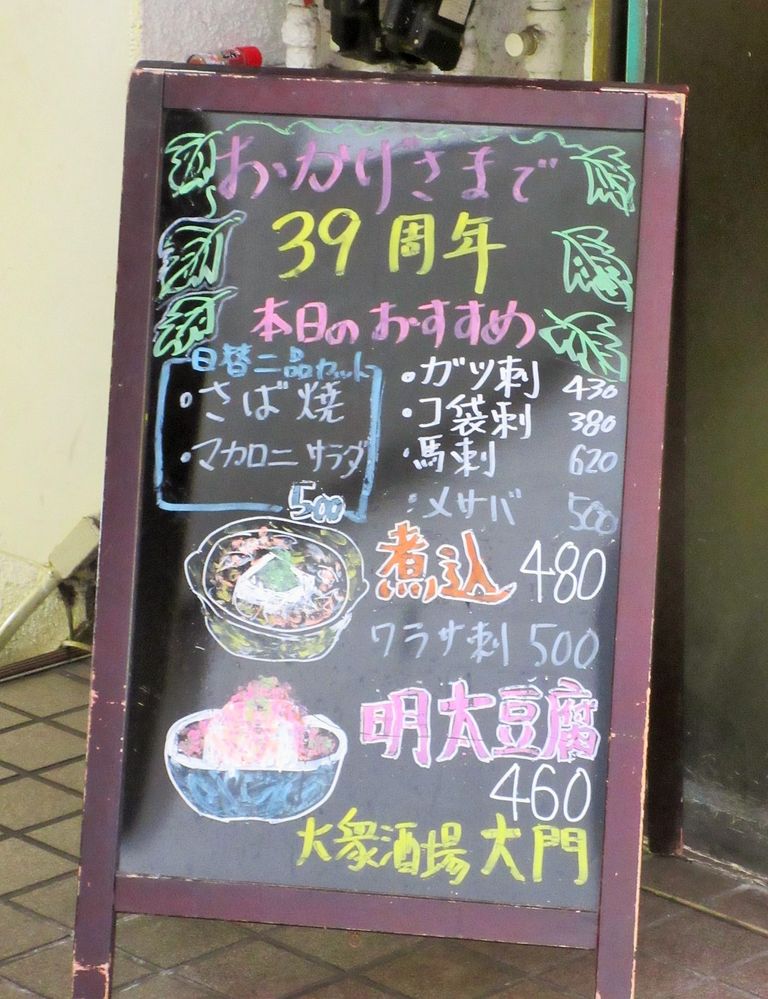 おかげさまで
39周年
本日のおすすめ
日替二品セット
・さば焼
・マカロニサラダ
500
・ガツ刺 430
・コ袋刺 380
・馬刺 620
・メサバ 500
煮込 480
ワラサ刺 500
明太豆腐
460
大衆酒場 大門